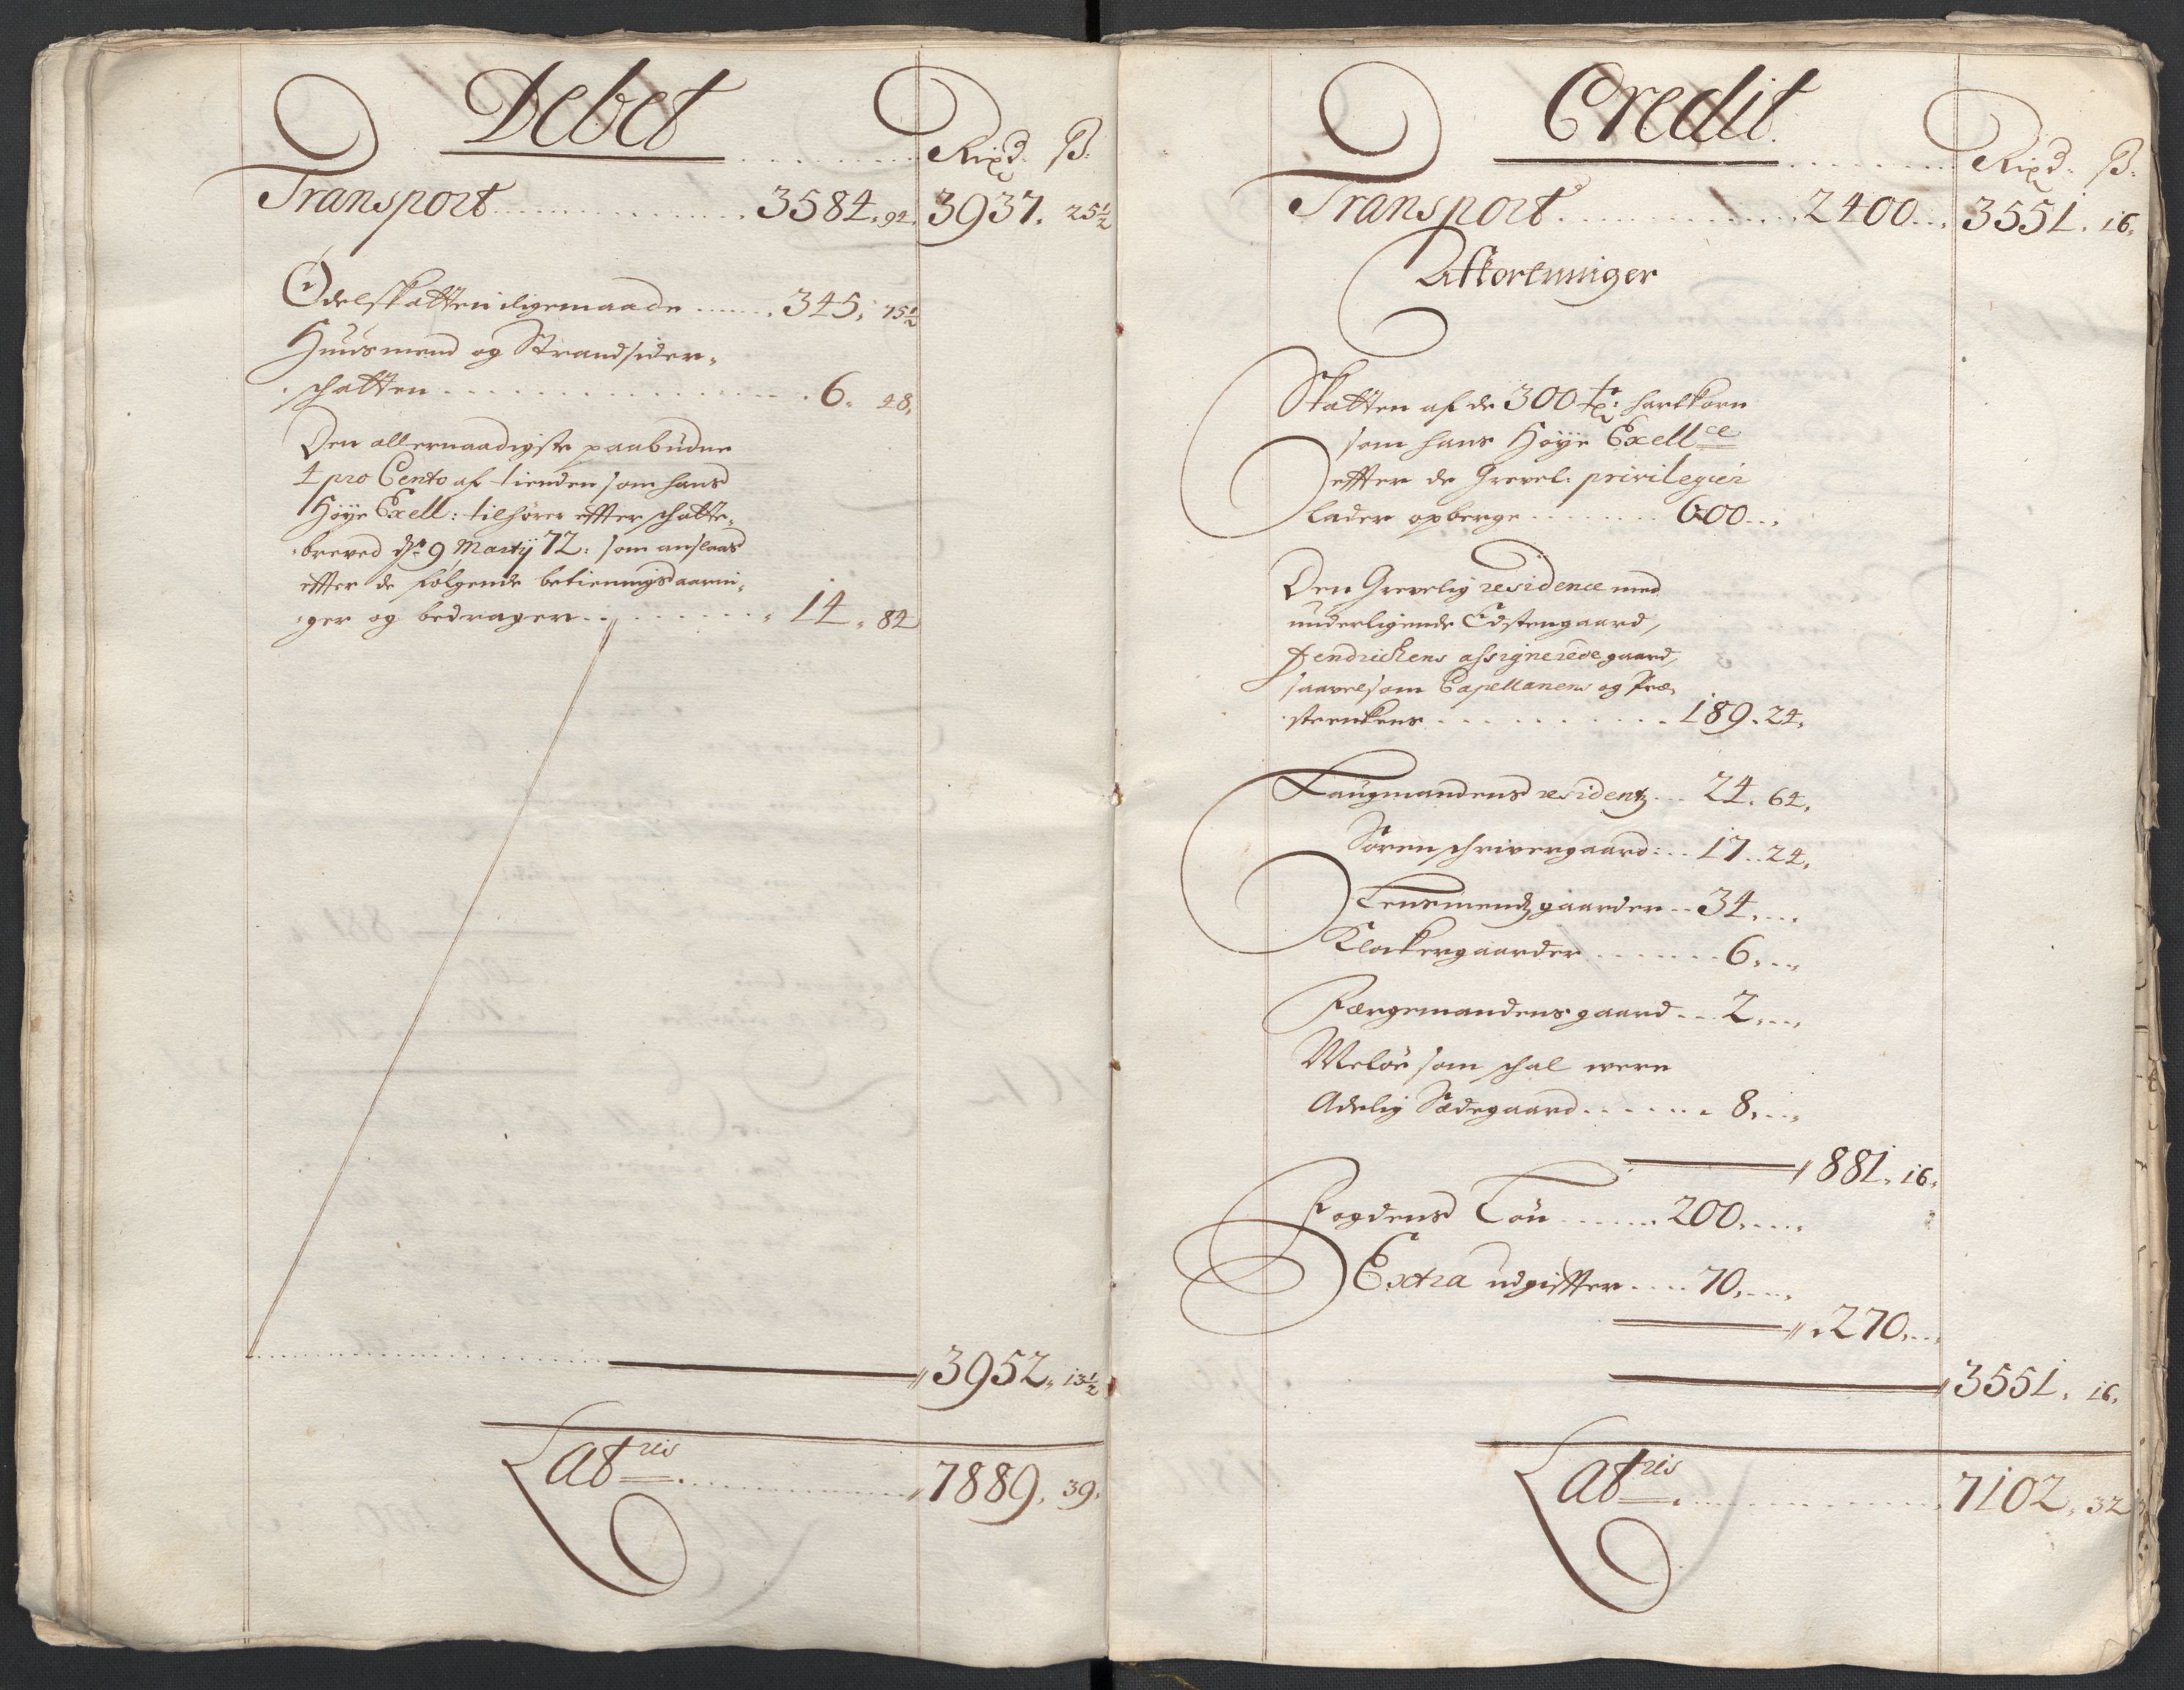 Debet
Rixd. ß.
Transport 3584. 94. 3937. 25½
Odelskatten iligemaade 345. 75½
Huusmend og Strandsider-
schatten 6. 48.
Den allernaadigste paabudne
4 pro Cento af tienden som hans
Høye Excell: tilhører effter schatte-
breved ds 9 Martij 72: som anslaas
effter de følgende betienningsaarin-
ger og bedragen 14. 84
3952. 13½
Lat ris 7889. 39.
Credit
Rixd. ß.
Transport 2400 3551. 16.
Affkortninger
Skatten af de 300 tr: hartkorn
som hans Høye Exell ce
effter de Grevel: privilegier
lader opberge 600
Den Grevelig residence med
underligende Edstengaard,
Hendrichens assignerede gaard,
saavelsom Capellanens og Præ-
steenkens 189. 24.
Laugmandens residentz 24. 64.
Sorenschrivergaard: 17. 24.
Lensmendz gaarder 34.
Klockergaarder 6.
Færgemandens gaard 2.
Meløe som schal were
Adelig Sædegaard 8.
881. 16.
Fogdens Løn 200.
Extra udgiffter 70.
270.
3551. 16.
Lat ris 7102. 32